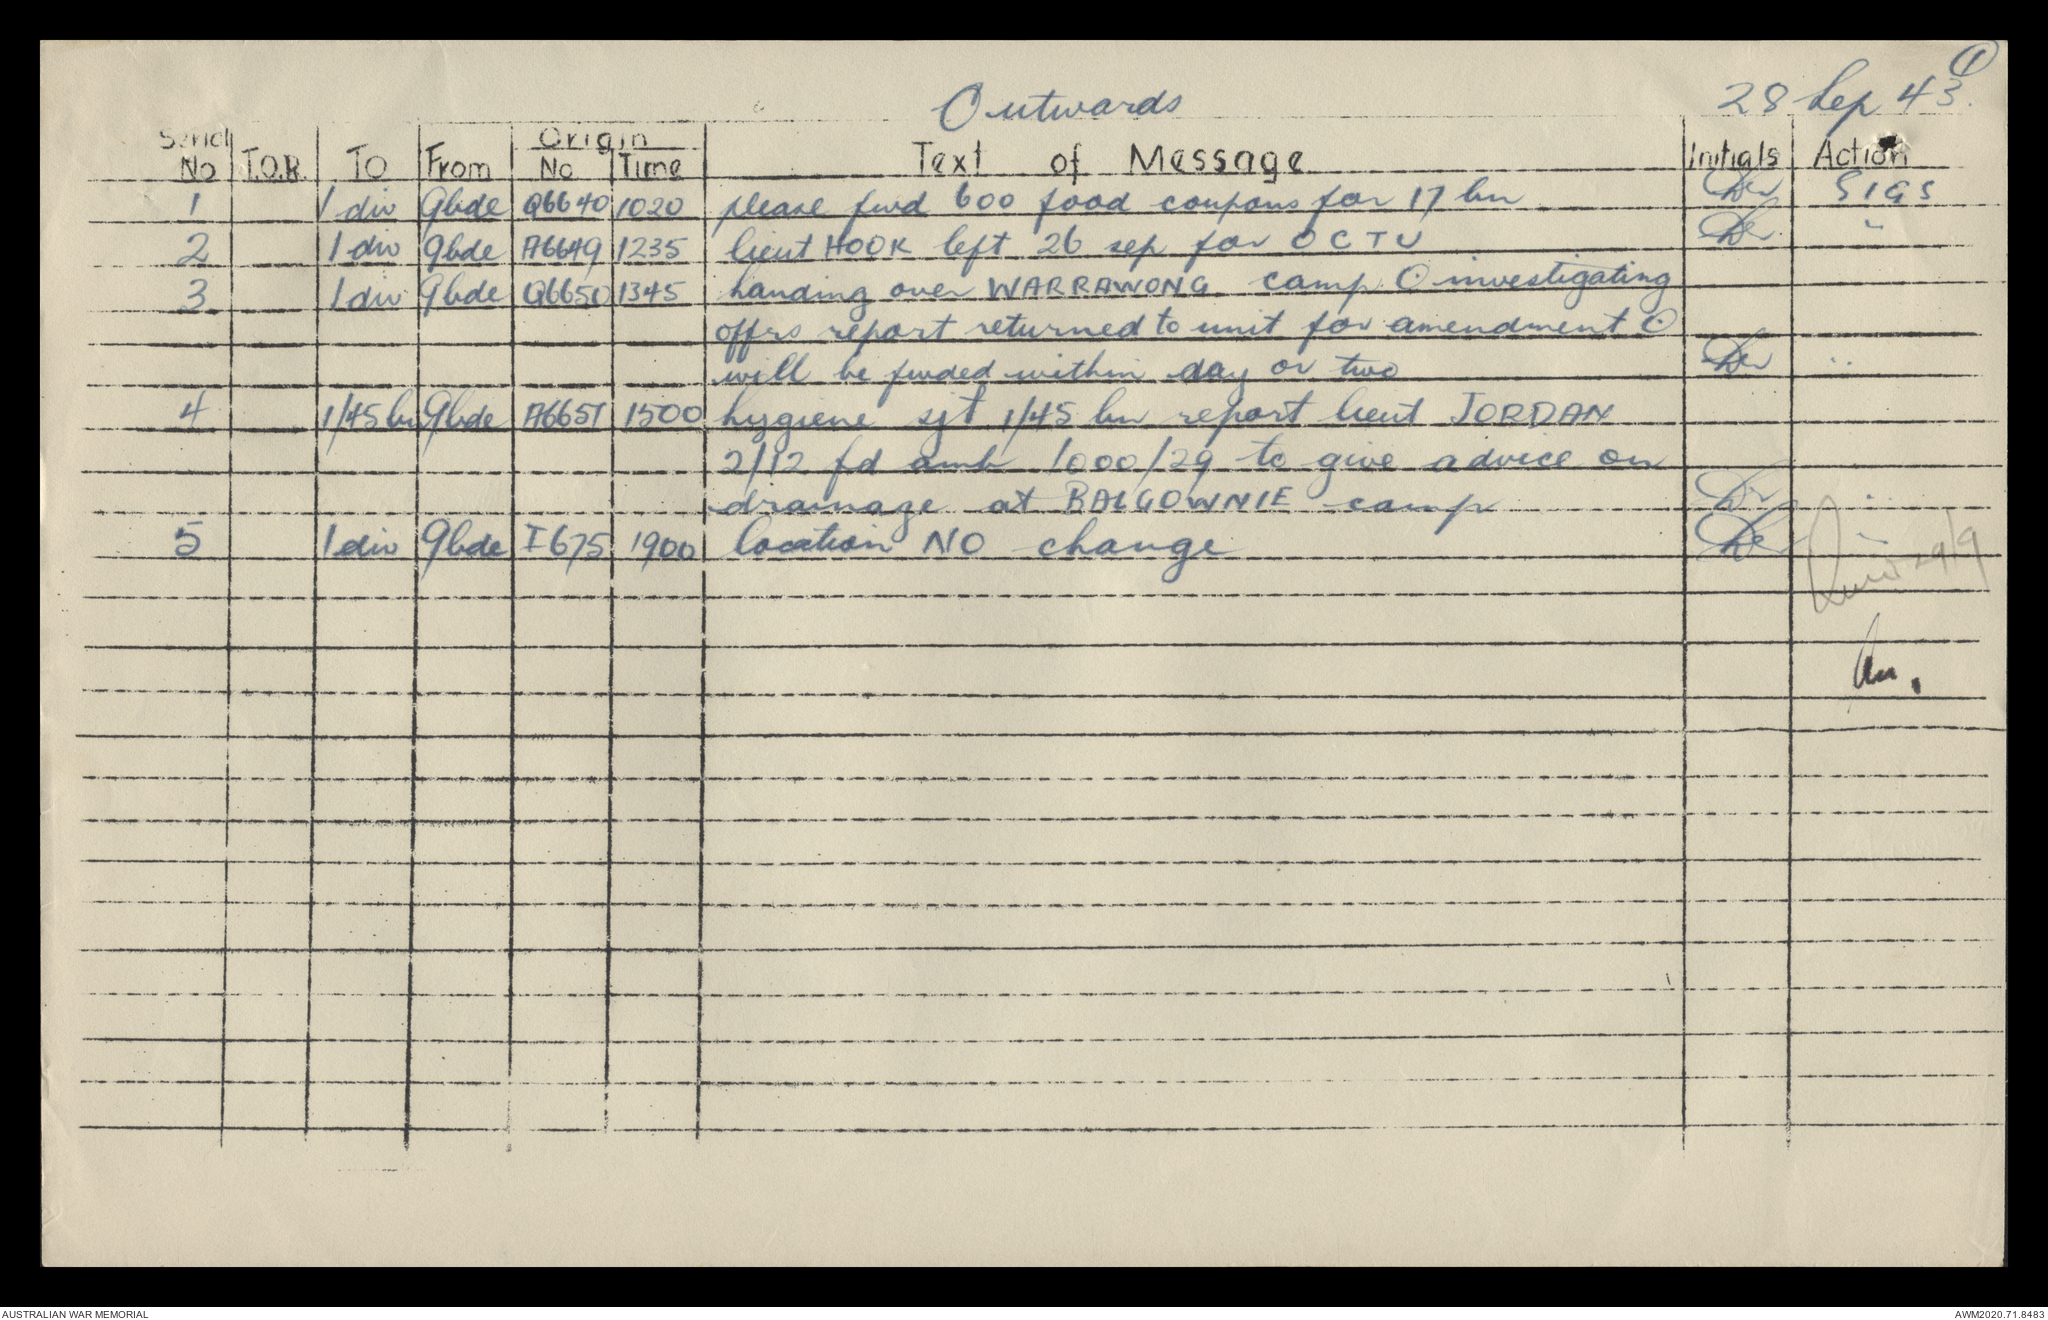 1
Outwards 28 Sep 43.
Serial No T.O.R. TO From Origin No Time Text of Message Initials Action
1 1 div 9bde Q6640 1020 please fwd 600 food coupons for 17 bn SIGS
2 1 div 9bde A6649 1235 lieut HOOK left 26 sep for OCTU "
3 1 div 9bde Q6650 1345 handing over WARRAWONG camp ⊙ investigating
offrs report returned to unit for amendment ⊙
will be fwded within day or two "
4 1/45 bn 9bde A6651 1500 hygiene sjt 1/45 bn report lieut JORDAN
2/12 fd amb 1000/29 to give advice on
drainage at BALGOWNIE camp "
5 1 div 9bde I675 1900 location NO change "
29/9
AUSTRALIAN WAR MEMORIAL AWM2020.71.8483